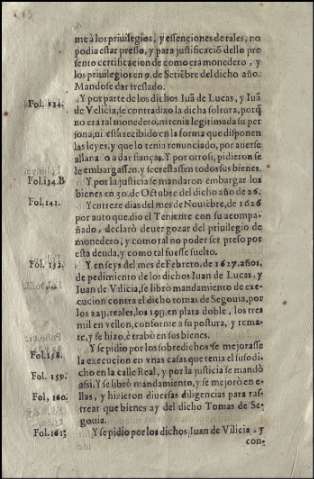 me à los priuilegios, y essenciones de tales, no
podia estar presso, y para justificació dello pre
sentó certificacion de como era monedero, y
los priuilegios en 9. de Setiẽbre del dicho año.
Mandose dar treslado.
Fol. 124. Y por parte de los dichos Iuã de Lucas, y Iuã
de Vilicia, se contradixo la dicha soltura, porq̃
no era tal monedero, ni tenia legitimada su per
sona, ni está recibido en la forma que disponen
las leyes, y que lo tenia renunciado, por auerse
allana o a dar fianças. Y por otrosi, pidieron se
le embargassen, y secrestassen todos sus bienes.
Fol. 134. B Y por la justicia se mandaron embargar los
bienes en 30. de Octubre del dicho año de 26.
Fol. 141. Y en treze dias del mes de Nouiẽbre, de 1626
por auto que dio el Teniente con su acompa-
ñado, declarò deuer gozar del priuilegio de
monedero, y como tal no poder ser preso por
esta deuda, y como tal fuesse suelto.
Fol. 152. Y en seys del mes de Febrero, de 1627. años,
de pedimiento de los dichos Iuan de Lucas, y
Iuan de Vilicia, se libro mandamiento de exe-
cucion contra el dicho tomas de Segouia, por
los reales, los en plata doble, los tres
mil en vellon, conforme a su postura, y rema-
te, y se hizo, é trabò en sus bienes.
Fol. 158. Y se pidio por los sobredichos se mejorasse
la execucion en vnas casas que tenia el susodi-
cho en la calle Real, y por la justicia se mandò
Fol. 159. assi. Y se librò mandamiento, y se mejorò en e-
Fol. 160. llas, y hizieron diuersas diligencias para ras-
trear que bienes ay del dicho Tomas de Se-
gouia.
Fol. 161. Y se pidio por los dichos, Iuan de Vilicia, y
con-